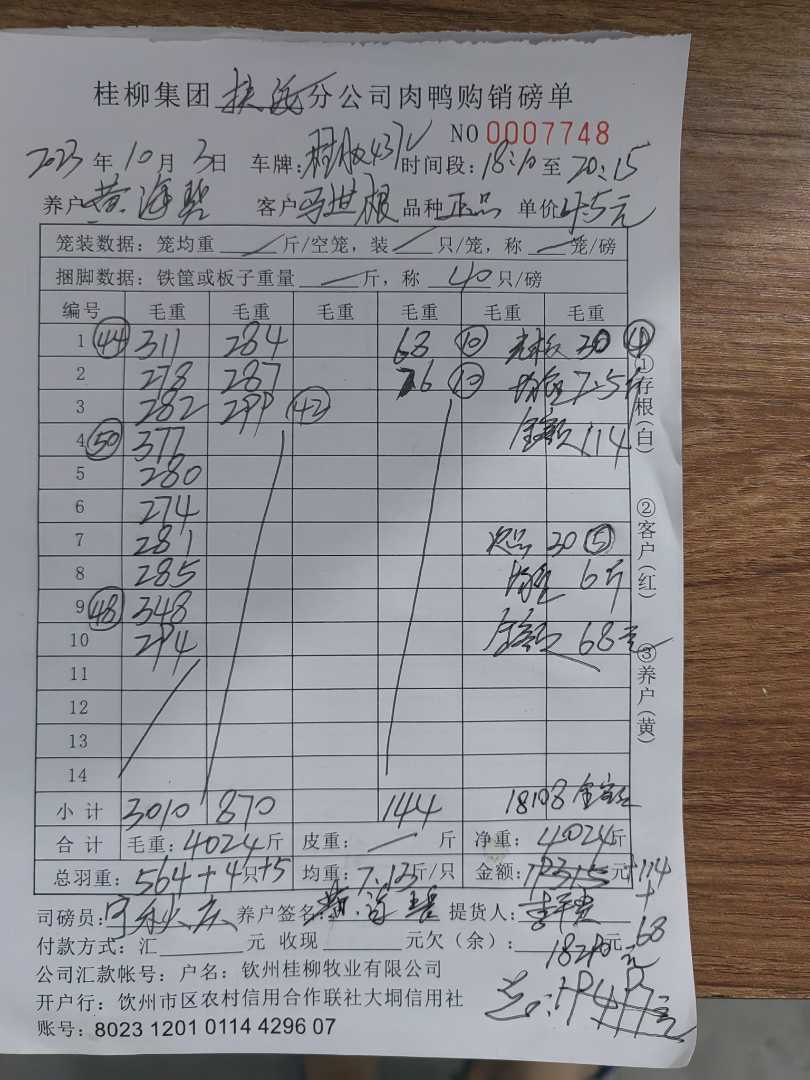 桂柳集团 分公司肉鸭购销磅单
NO 0007748
2023 年 10 月 3 日 车牌: 时间段: 18:10 至 20:15
养户 黄海碧 客户 马世根 品种 正品 单价 4.5元
笼装数据: 笼均重 / 斤/空笼, 装 / 只/笼, 称 一 笼/磅
捆脚数据: 铁筐或板子重量 一 斤, 称 40 只/磅
编号 毛重 毛重 毛重 毛重 毛重 毛重
1 44 311 284 68 10 30 4
2 278 287 76 10 均重 7.5斤
3 282 299 42 金额 114
4 50 377
5 280
6 274
7 281 次品 30 5
8 285 均重 6斤
9 48 348 金额 68元
10 294
11
12
13
14
小计 3010 870 144 18108 金额
合计 毛重: 4024 斤 皮重: 一 斤 净重: 4024 斤
总羽重: 564+4 只 +5 均重: 7.125 斤/只 金额: 元 +114
+
68
司磅员: 养户签名: 黄海碧 提货人:
付款方式: 汇 元 收现 元 欠(余): 元
18290元
公司汇款帐号: 户名: 钦州桂柳牧业有限公司
开户行: 饮州市区农村信用合作联社大垌信用社
账号: 8023 1201 0114 4296 07
①存根(白)
②客户(红)
③养户(黄)